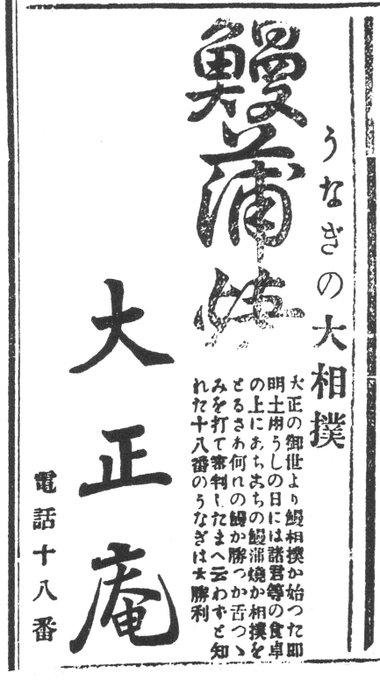 うなぎの大相撲
鰻蒲焼
大正の御世より鰻相撲か始つた即
明土用うしの日には諸君等の食卓
の上にあちこちの鰻蒲燒か相撲を
とるさあ何れの鰻か勝つか舌つゝ
みを打て審判したまへ云わずと知
れた十八番のうなぎは大勝利
大正庵
電話十八番